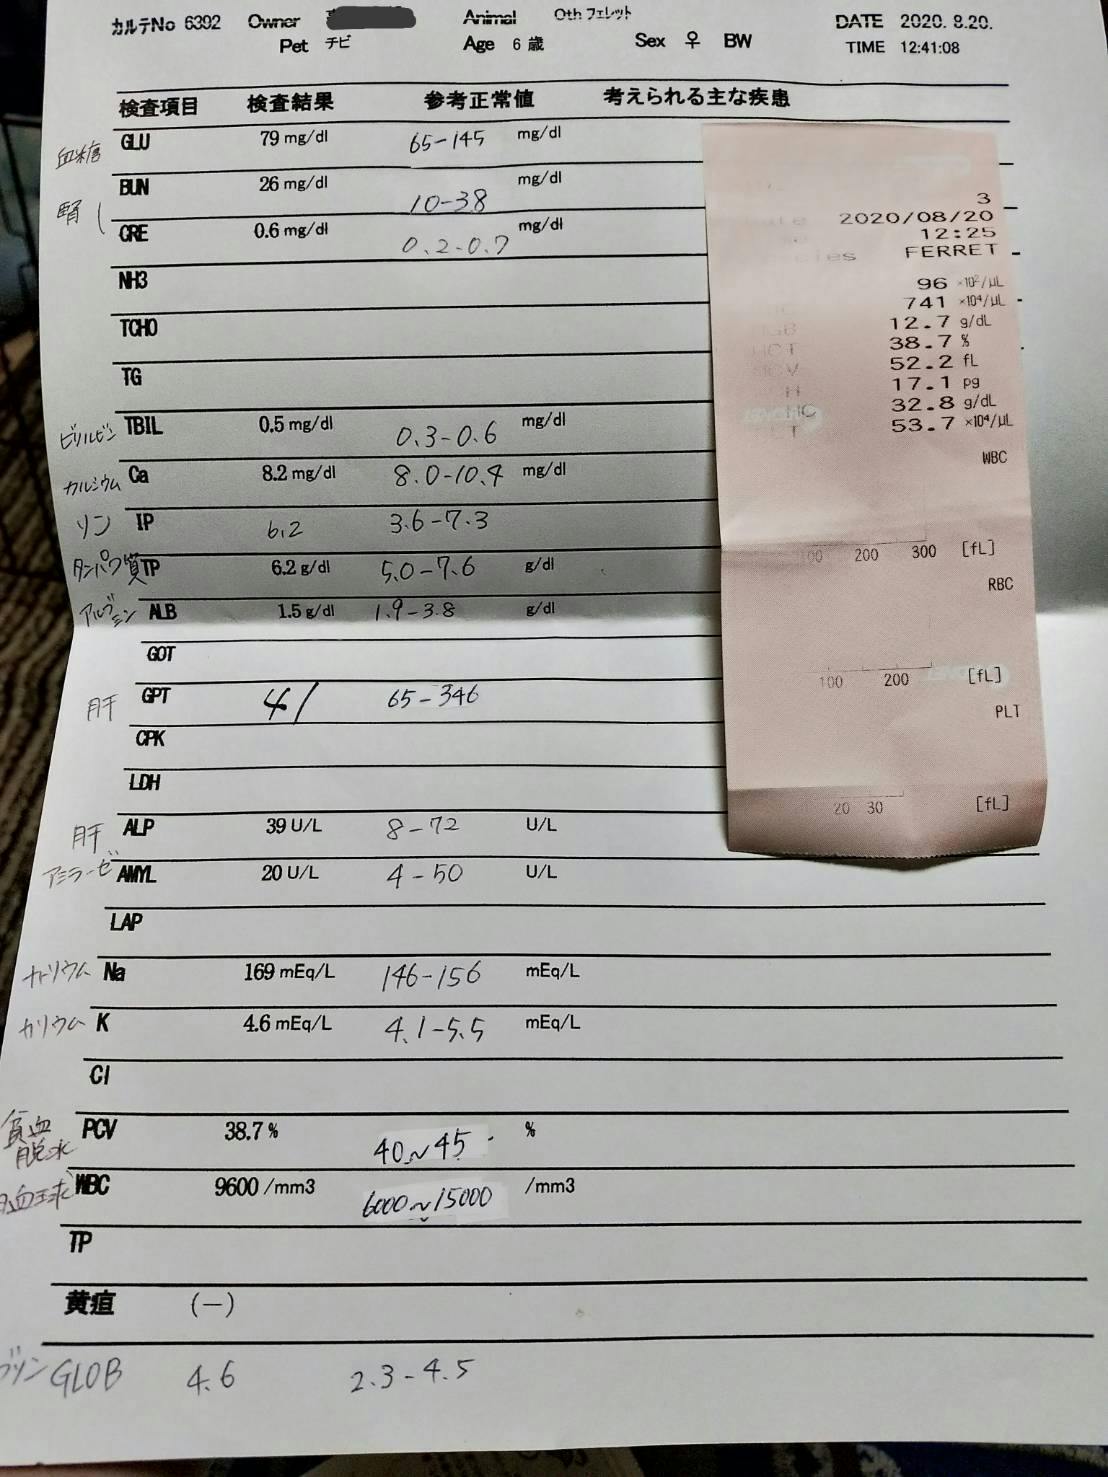 カルテNo 6392 Owner Animal Oth フェレット DATE 2020. 8.20.
Pet チビ Age 6 歳 Sex ♀ BW TIME 12:41:08
検査項目 検査結果 参考正常値 考えられる主な疾患
血糖 GLU 79 mg/dl 65-145 mg/dl
腎 BUN 26 mg/dl 10-38 mg/dl
CRE 0.6 mg/dl 0.2-0.7 mg/dl
NH3
TCHO
TG
ビリルビン TBIL 0.5 mg/dl 0.3-0.6 mg/dl
カルシウム Ca 8.2 mg/dl 8.0-10.4 mg/dl
リン IP 6.2 3.6-7.3
タンパク質 TP 6.2 g/dl 5.0-7.6 g/dl
アルブミン ALB 1.5 g/dl 1.9-3.8 g/dl
GOT
肝 GPT 41 65-346
CPK
LDH
肝 ALP 39 U/L 8-72 U/L
アミラーゼ AMYL 20 U/L 4-50 U/L
LAP
ナトリウム Na 169 mEq/L 146-156 mEq/L
カリウム K 4.6 mEq/L 4.1-5.5 mEq/L
Cl
貧血
脱水 PCV 38.7 % 40~45 %
血球 WBC 9600 /mm3 6000~15000 /mm3
TP
黄疸 (-)
ブリン GLOB 4.6 2.3-4.5
3
2020/08/20
12:25
FERRET
96 ×10²/μL
741 ×10⁴/μL
12.7 g/dL
HCT 38.7 %
52.2 fL
17.1 pg
32.8 g/dL
53.7 ×10⁴/μL
WBC
100 200 300 [fL]
RBC
100 200 [fL]
PLT
20 30 [fL]